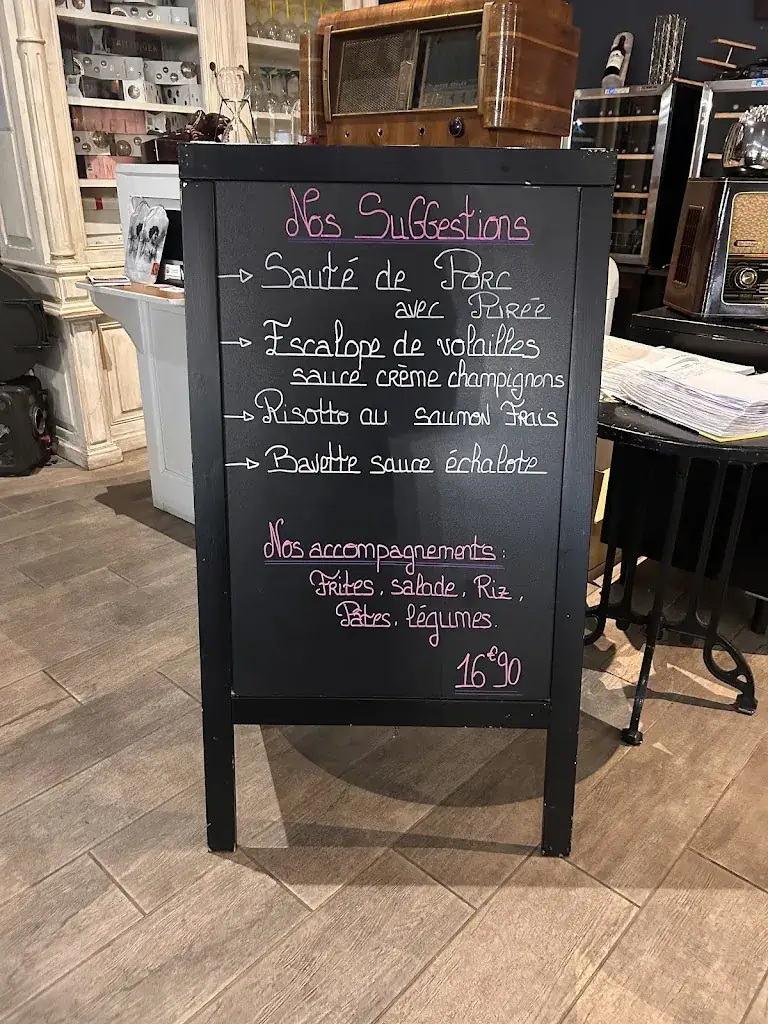 Nos SuGGestions
→ Sauté de Porc
avec Purée
→ Escalope de volailles
sauce crème champignons
→ Risotto au saumon Frais
→ Bavette sauce échalote
Nos accompagnements :
Frites, salade, Riz,
Pâtes, légumes.
16€90